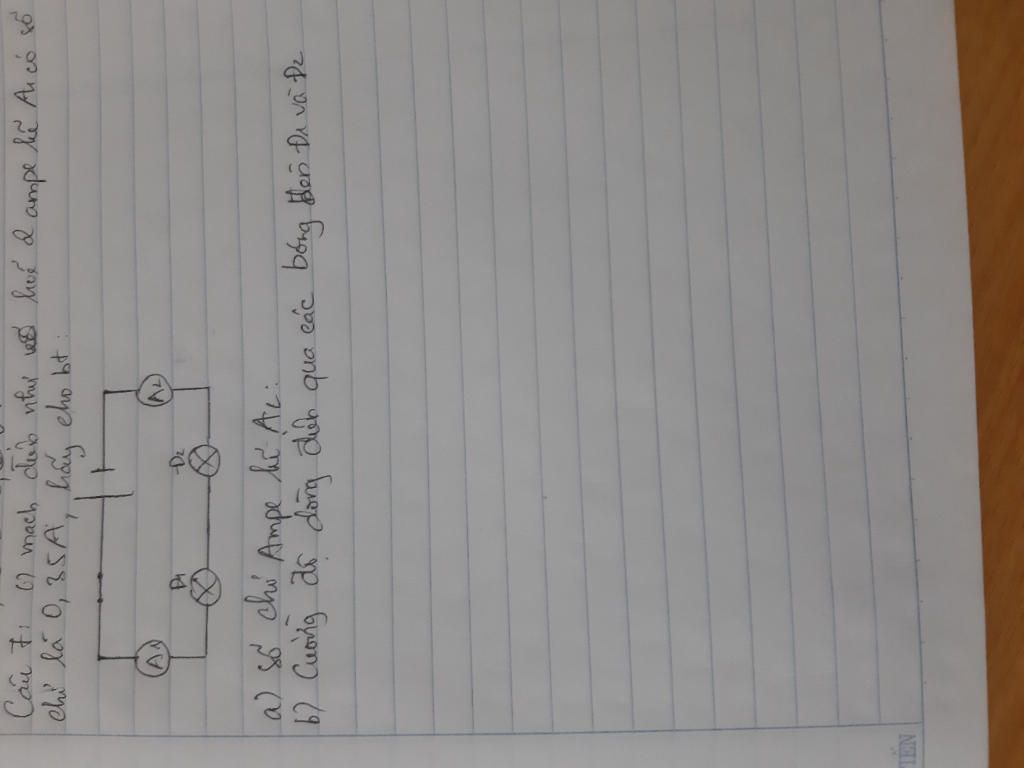 Câu 7: Có mạch điện như hvẽ. số 2 ampe kế A1 có số
chỉ là 0,35A, hãy cho bt:
A1
A2
Đ1
Đ2
a) Số chỉ Ampe kế A2.
b) Cường độ dòng điện qua các bóng đèn Đ1 và Đ2
TIẾN